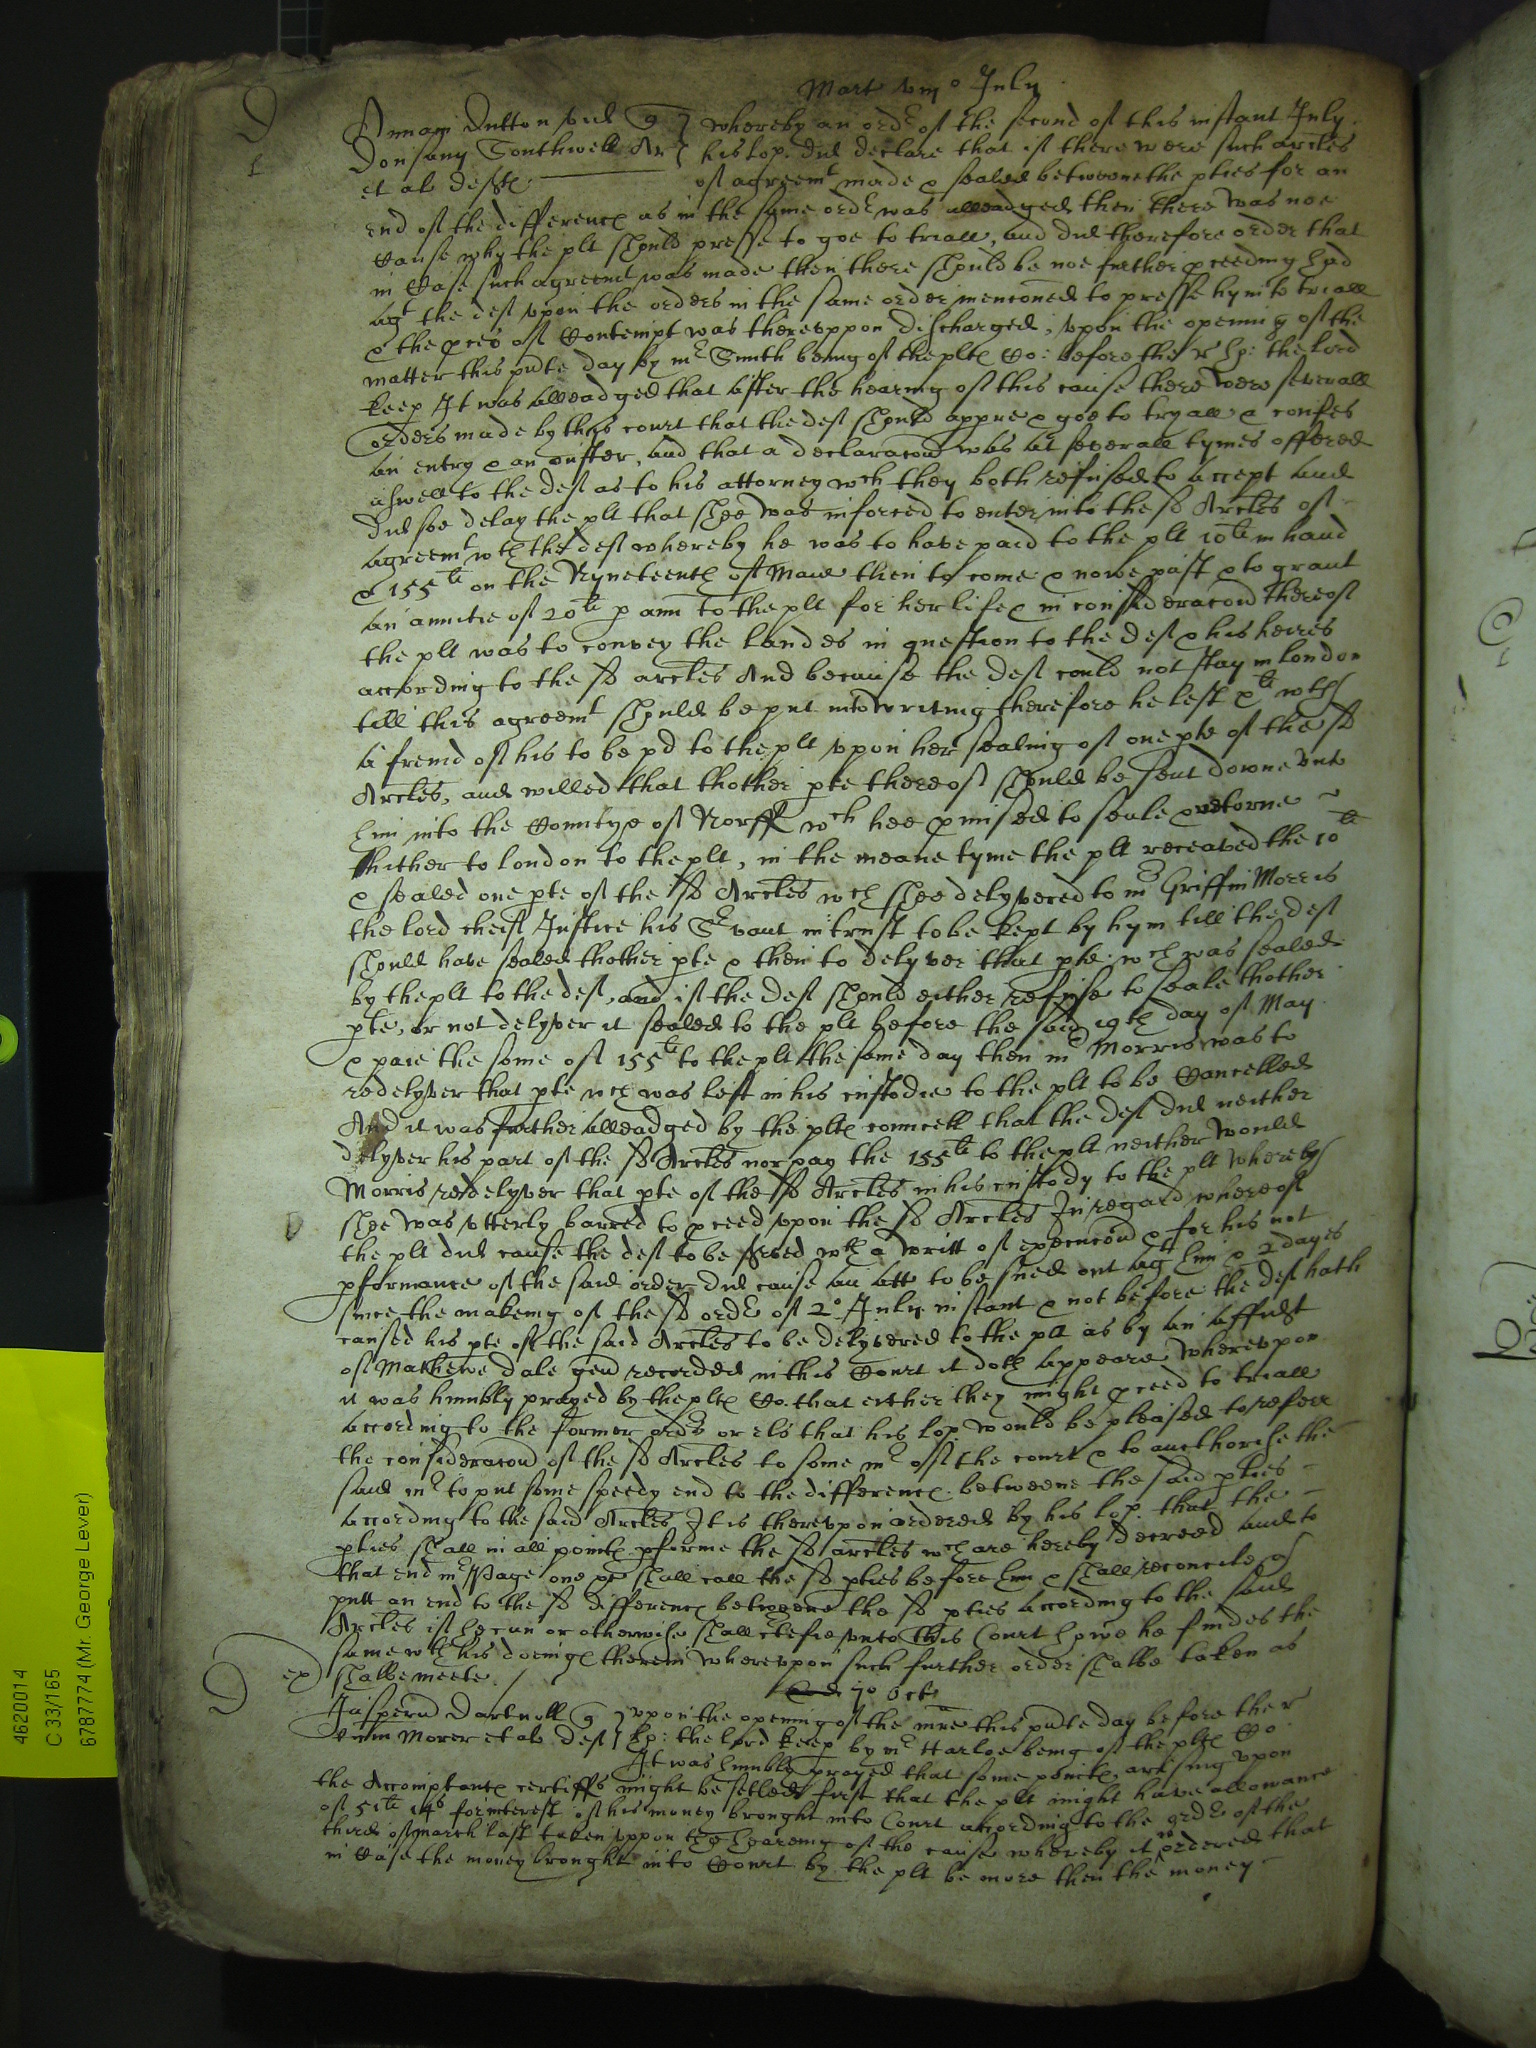 Mart viijo July
D Annam Dutton vid q } whereby an ordr of the second of this instant July
Dunsany Southwell Ar { his lop. did declare that if there were such arcles
et al deftes of agreemt made & sealed betweene the pties for an
end of the differences as in the same ordr was alleadged then there was noe
cause why the plt should presse to goe to triall, and did therefore order that
in case such agreemt was made then there should be noe further pceeding had
agt the deft vpon the orders in the same order mencioned to presse hym to triall
& the pces of Contempt was therevppon discharged, vpon the opening of the
matter this pnte day by mr Smith being of the pltes Co: before the r ho: the lord
keep It was alleadged that after the hearing of this cause there were severall
orders made by this court that the deft should appere & goe to tryall & confes
an entry & an ouster, and that a declaracon was at severall tymes offered
aswell to the deft as to his attorney wch they both refused to accept and
did soe delay the plt that shee was inforced to enter into the sd Arcles of
agreemt wth the deft whereby he was to have paid to the plt 10li in hand
& 155li on the Nyneteenth of Maie then to come & nowe past & to graunt
an annitie of 20li p ann to the plt for her life & in consideracon thereof
the plt was to convey the landes in question to the deft & his heires
according to the sd arcles And because the deft could not stay in london
till this agreemt should be put into writing therefore he left xli wth
a freind of his to be pd to the plt vpon her sealing of one pte of the sd
Arcles, and willed that thother pte thereof should be sent downe vnto
him into the Countye of Norff wch hee pmised to seale & retorne
thither to london to the plt, in the meane tyme the plt receaved the 10li
& sealed one pte of the sd Arcles wch shee delyvered to mr Griffin Morris
the lord cheif Justice his Srvant in trust to be kept by hym till the deft
should have sealed thother pte & then to delyver that pte wch was sealed
by the plt to the deft, and if the deft should either refuse to seale thother
pte, or not delyver it sealed to the plt before the said 19th day of May
& paie the some of 155li to the plt the same day then mr Morris was to
redelyver that pte wch was left in his custodie to the plt to be Cancelled
And it was further alleadged by the pltes councell that the deft did neither
delyver his part of the sd Arcles nor pay the 155li to the plt neither would
Morris redelyver that pte of the sd Arcles in his custody to the plt whereby
shee was vtterly barred to pceed vpon the sd Arcles In regard whereof
the plt did cause the deft to be served wth a writt of execucon & for his not
pformance of the said order did cause an att to be sued out agt him & 2 dayes
since the makeing of the sd ordr of 2o July instant & not before the deft hath
caused his pte of the said Arcles to be delyvered to the plt as by an affidt
of Mathewe Dale gen recorded in this Court it doth appeare, wherevpon
it was humbly prayed by the pltes Co. that either they might pceed to triall
according to the former ordrs or els that his lop would be pleased to referr
the consideracon of the sd Arcles to some mr of the court & to aucthorise the
said mr to put some speedy end to the differences betweene the said pties
according to the said Arcles It is therevpon ordered by his lop. that the
pties shall in all pointes pforme the sd arcles wch are hereby decreed and to
that end mr Page one &c shall call the sd pties before him & shall reconcile &
putt an end to the sd differences betweene the sd pties according to the said
Arcles if hee can or otherwise shall ctefie vnto this Court howe he findes the
same wth his doeinges therein wherevpon such further order shalbe taken as
ex shalbe meete /
D 7o octr
Jasperu Dartnoll q } vpon the opening of the mre this pnte day before the r
Morer et al deft } ho: the lord keep by mr Harloe being of the pltes Co
It was humbly prayed that some pointes, arising vpon
the Accomptantes certiffs might be setled first that the plt might have allowance
of 51li 14s for interest of his money brought into Court according to the ordr of the
third of March last taken vppon the hearing of the cause whereby it is ordered that
in Case the money brought into Court by the plt be more then the money
4620014
C 33/165
6787774 (Mr. George Lever)